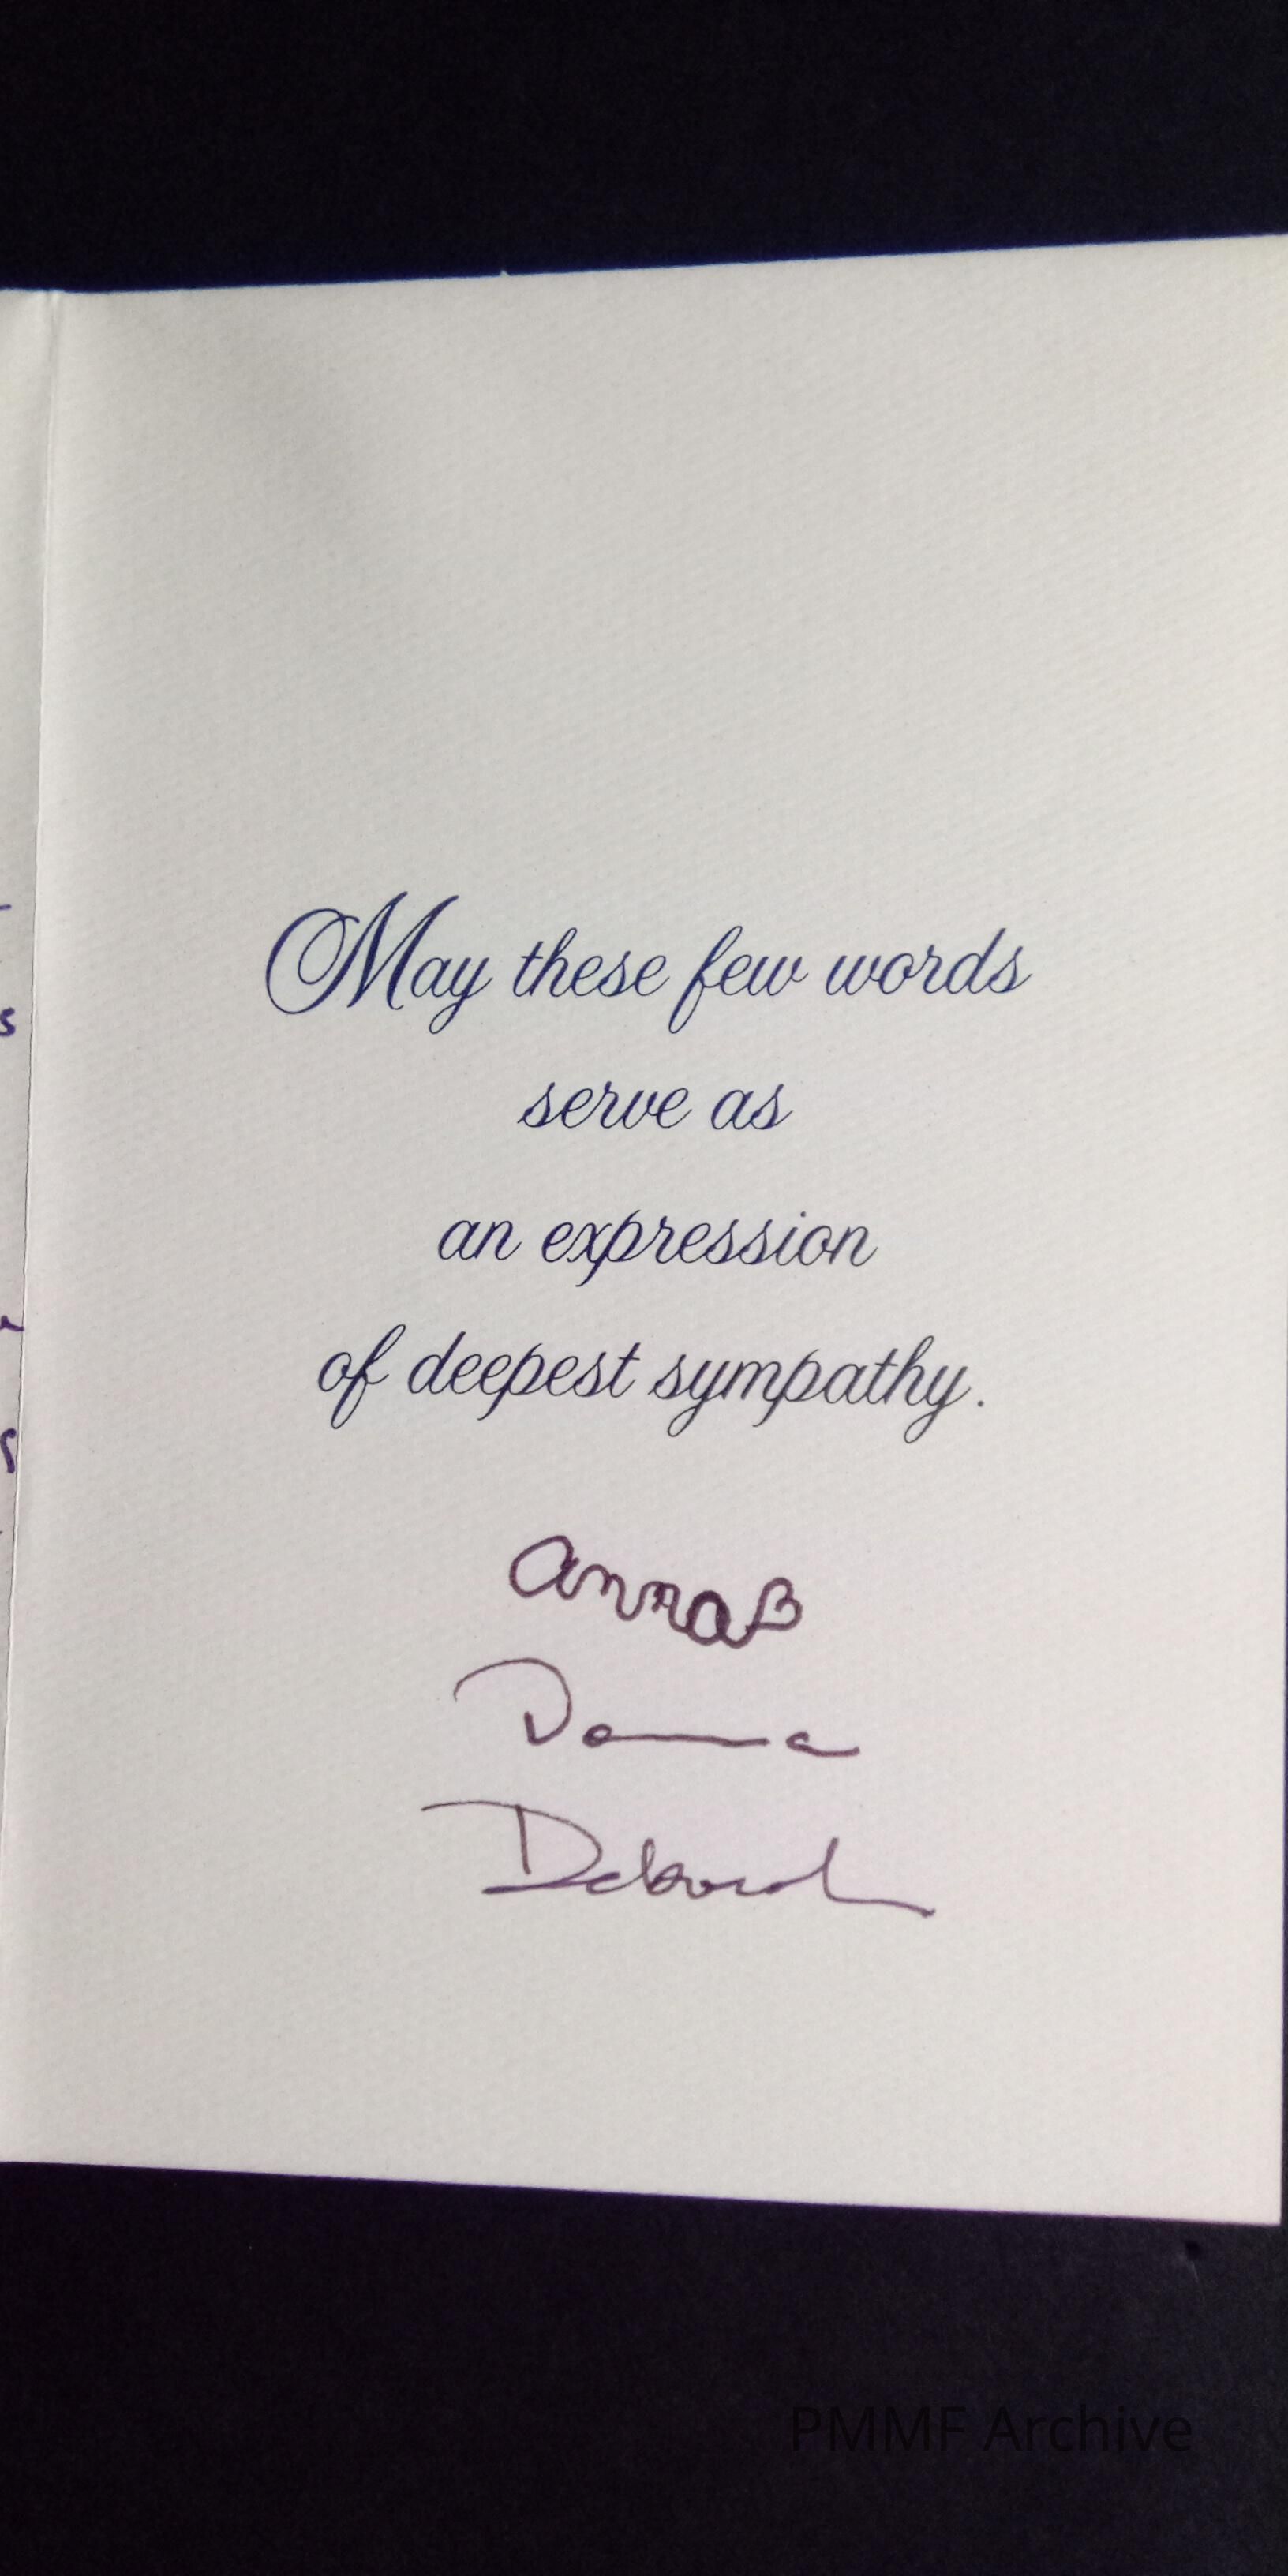 May these few words
serve as
an expression
of deepest sympathy.
anna
Donna
Deborah
PMMF Archive